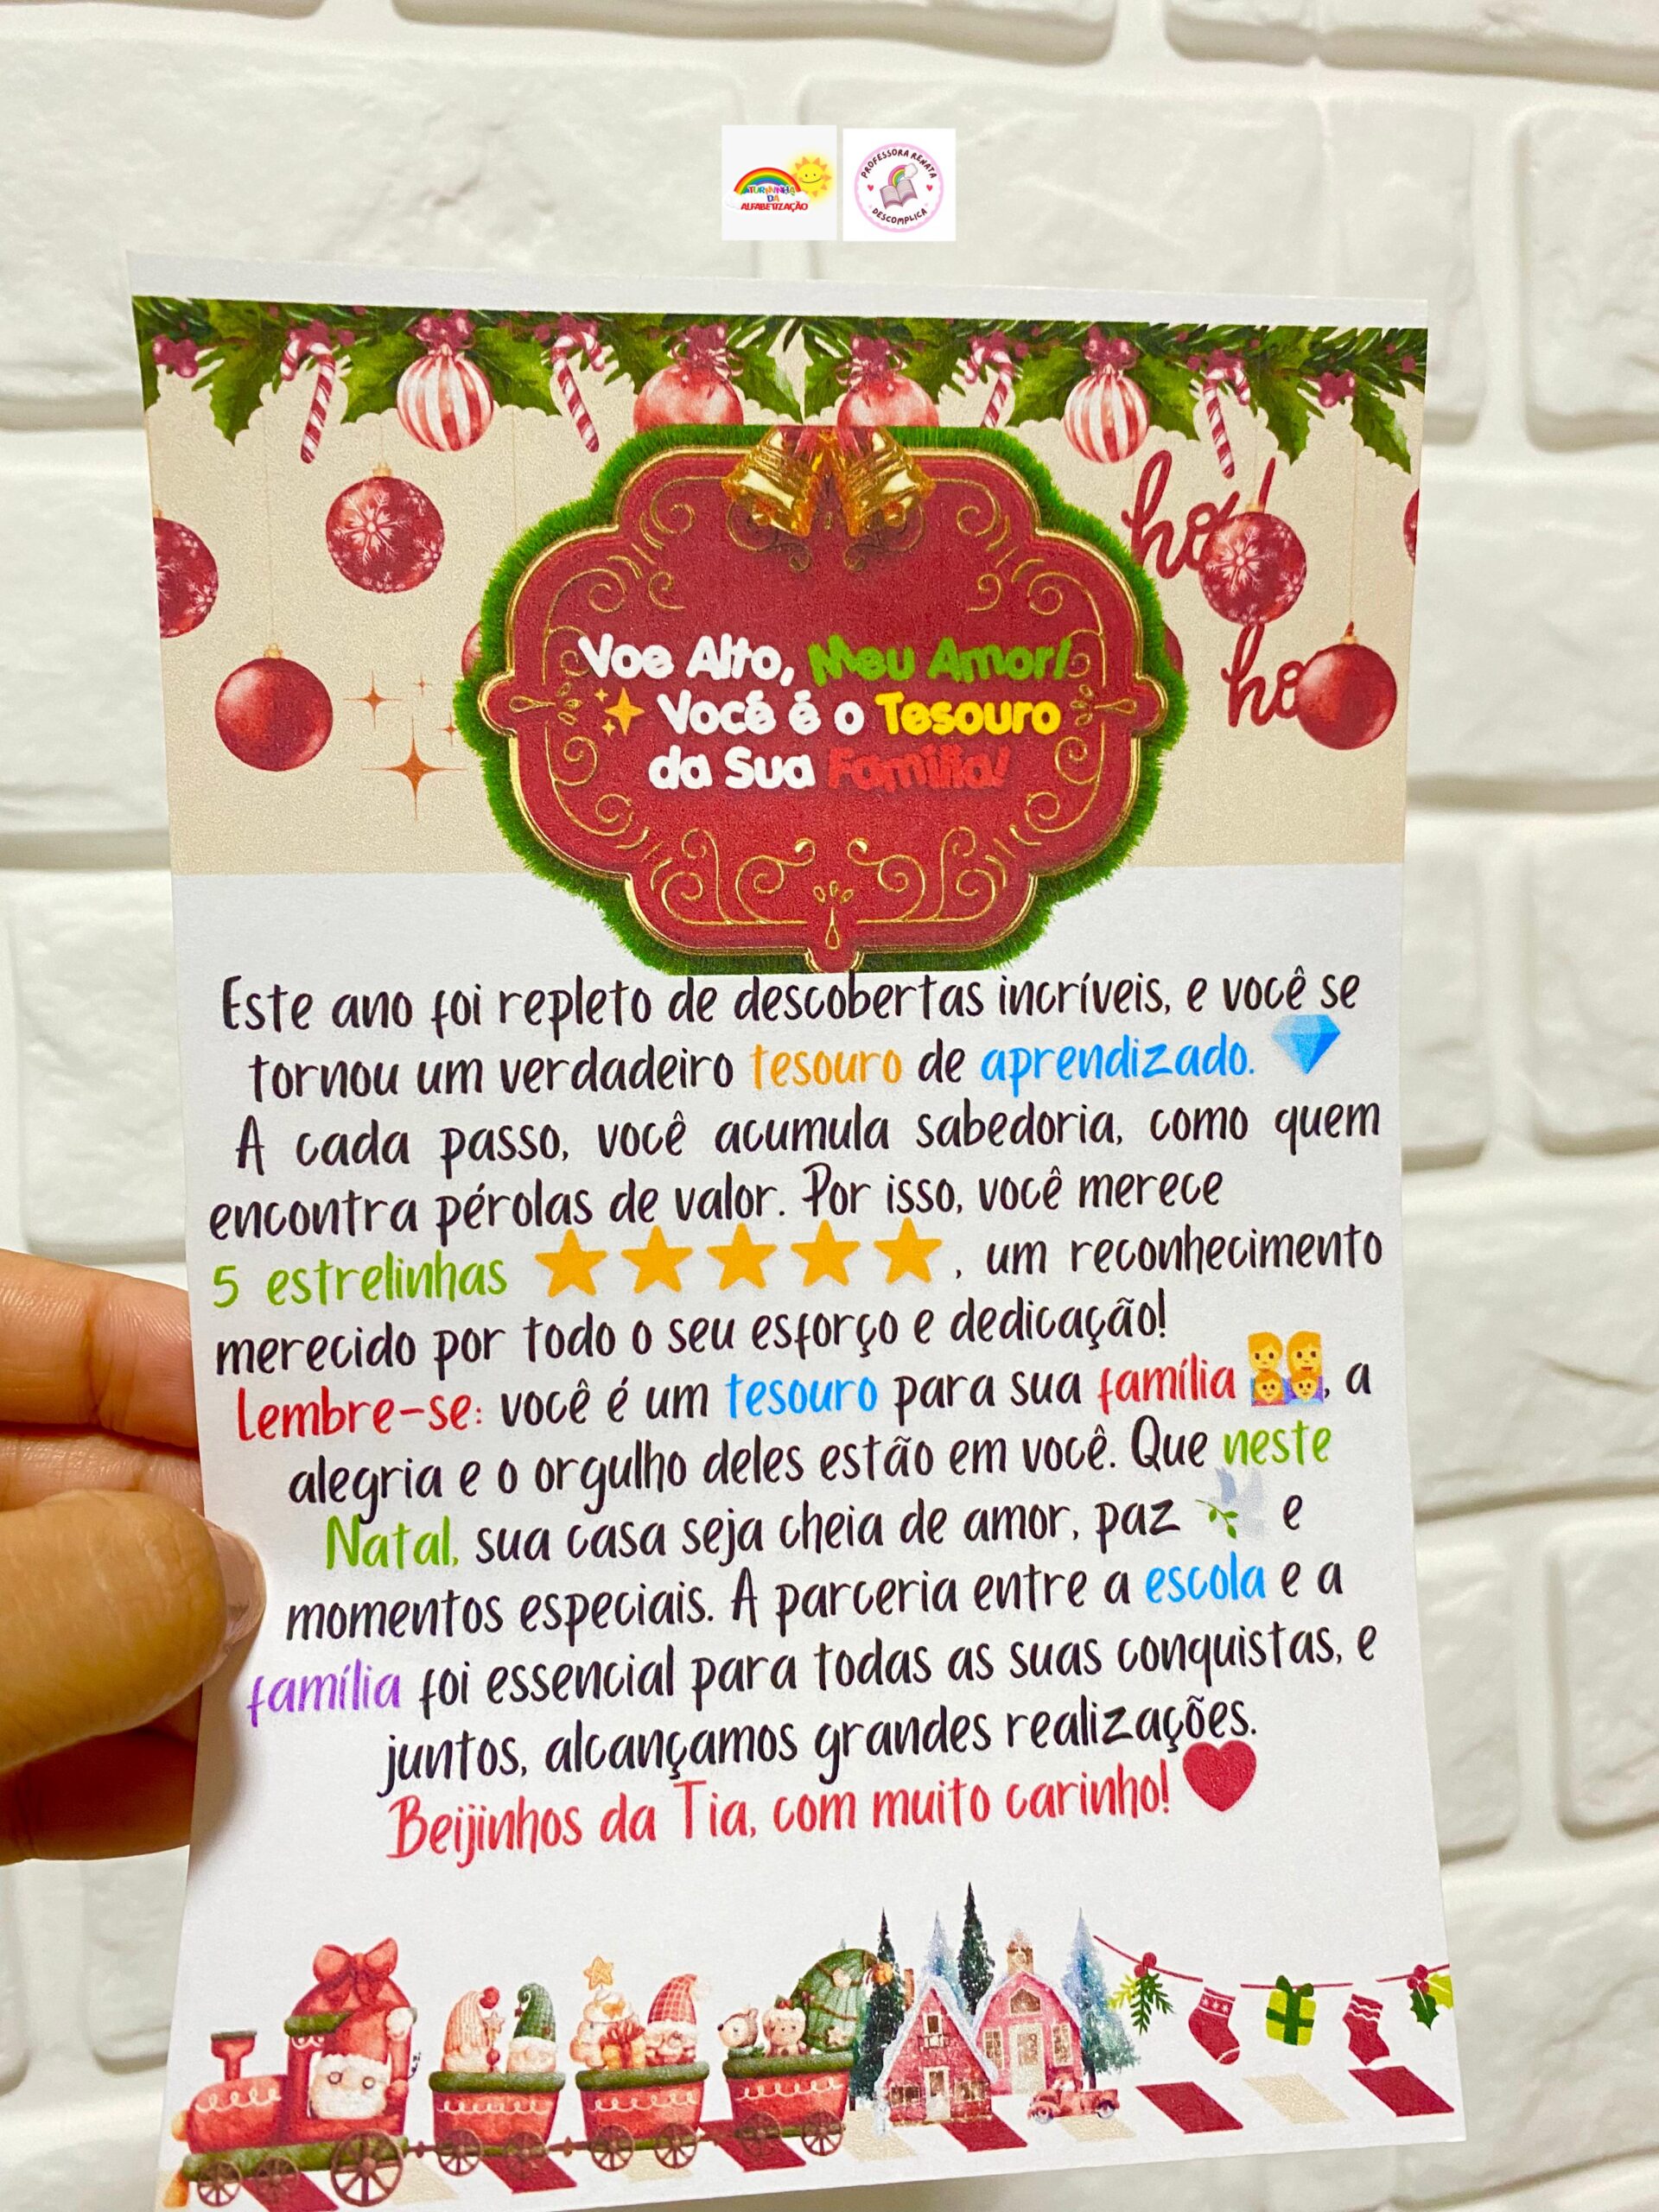 TURMINHA
DA
ALFABETIZAÇÃO
PROFESSORA RENATA
DESCOMPLICA
ho!
ho
Voe Alto, Meu Amor!
Você é o Tesouro
da Sua Família!
Este ano foi repleto de descobertas incríveis, e você se
tornou um verdadeiro tesouro de aprendizado. 💎
A cada passo, você acumula sabedoria, como quem
encontra pérolas de valor. Por isso, você merece
5 estrelinhas ⭐⭐⭐⭐⭐, um reconhecimento
merecido por todo o seu esforço e dedicação!
Lembre-se: você é um tesouro para sua família 👨‍👩‍👧‍👦, a
alegria e o orgulho deles estão em você. Que neste
Natal, sua casa seja cheia de amor, paz 🕊️ e
momentos especiais. A parceria entre a escola e a
família foi essencial para todas as suas conquistas, e
juntos, alcançamos grandes realizações.
Beijinhos da Tia, com muito carinho! ❤️